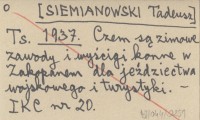 [SIEMIANOWSKI Tadeusz]
Ts. 1937. Czem są zimowe
zawody i wyścigi konne w
Zakopanem dla jeździectwa
wojskowego i turystyki. –
IKC nr 20.